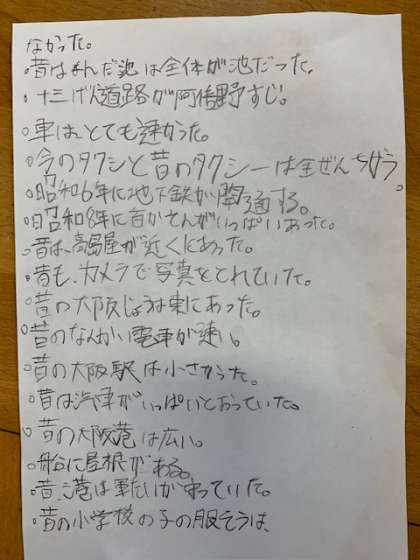 なかった。
・昔はまんだ池は全体が池だった。
・十三げん道路が阿倍野すじ。
・車はとても速かった。
・今のタクシと昔のタクシーは全ぜんちがう。
・昭和6年に地下鉄が開通する。
・昭和8年に百かてんがいっぱいあった。
・昔は、高島屋が近くにあった。
・昔も、カメラで写真をとれていた。
・昔の大阪じょうは東にあった。
・昔のなんかい電車が速い。
・昔の大阪駅は小さかった。
・昔は汽車がいっぱいとおっていた。
・昔の大阪港は広い。
・船に屋根がある。
・昔、港は軍たいが守っていた。
・昔の小学校の子の服そうは、